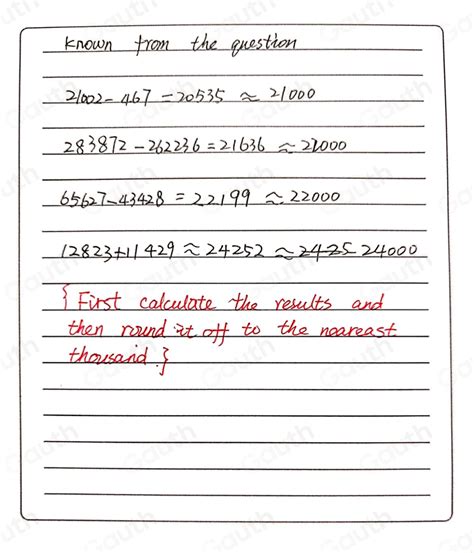 known from the question
21002-467=20535≈21000
283872-262236=21636≈22000
65627-43428=22199≈22000
12823+11429≈24252≈2425 24000
{First calculate the results and
then round it off to the noareast
thousand.}